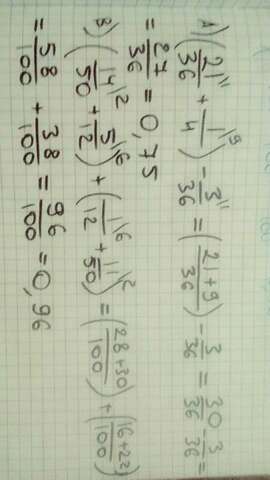 А) (21/36 \1 + 1/4 \9) - 3/36 \1 = (21+9/36) - 3/36 = 30/36 - 3/36 =
= 27/36 = 0,75
В) (14/50 \2 + 5/12 \6) + (1/12 \6 + 11/50 \2) = (28+30/100) + (16+22/100)
= 58/100 + 38/100 = 96/100 = 0,96